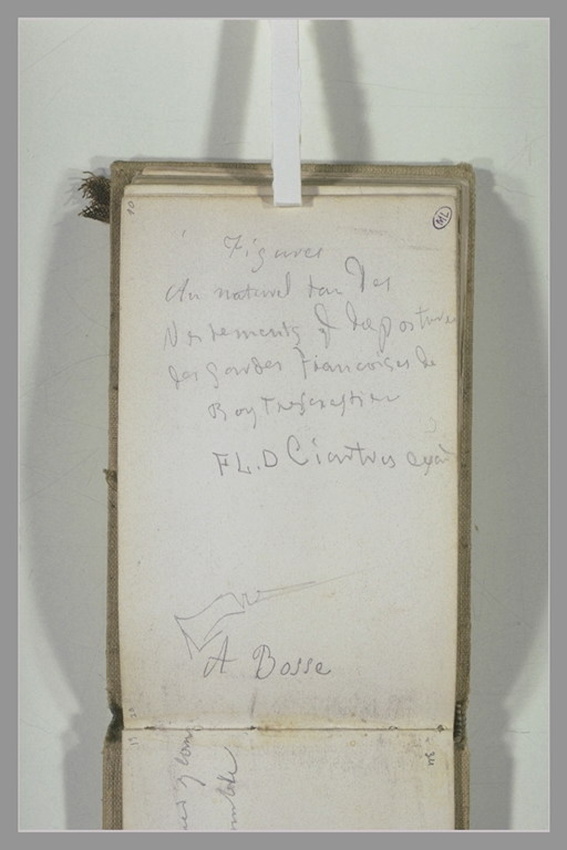 Figures
Au naturel tan des
Vestements & des postures
des gardes Francoises de
Roy Treschrestien
F L. D Ciartres excu
A Bosse
ML